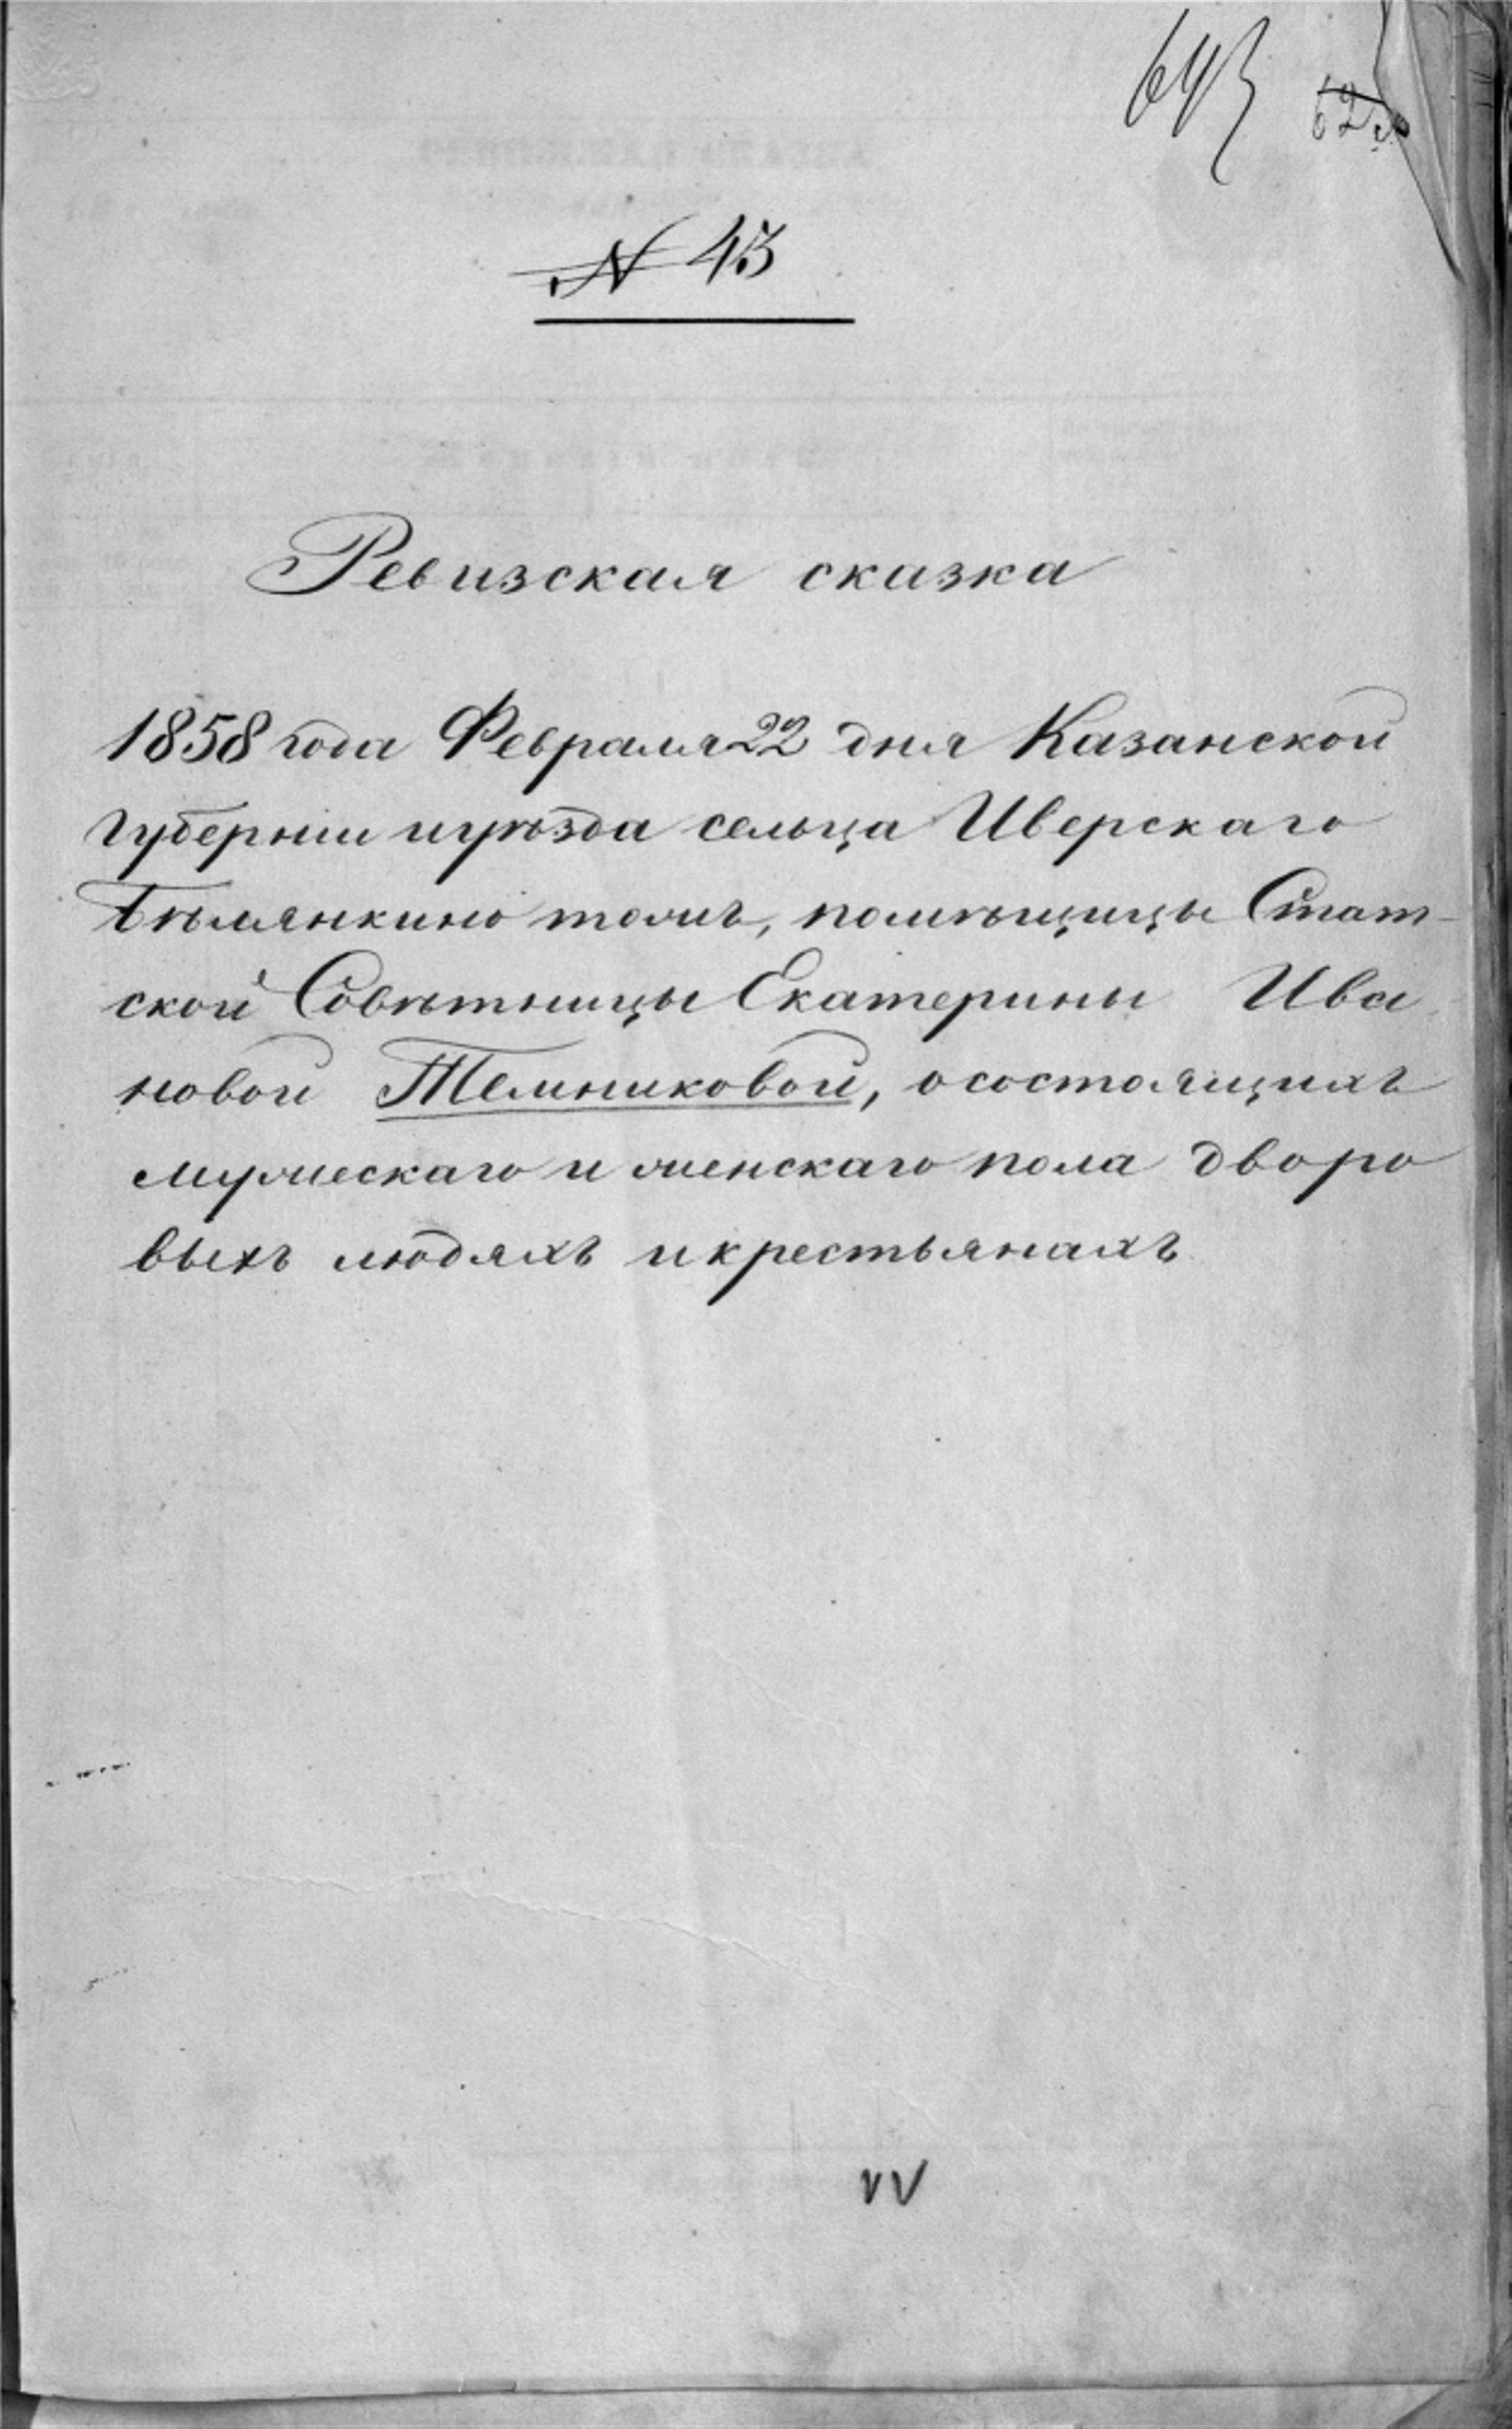 643
62
№ 43
Ревизская сказка
1858 года Февраля 22 дня Казанской
губернии иуѣзда сельца Иверскаго
Бѣлянкино тожъ, помѣщицы Стат-
ской Совѣтницы Екатерины Ива
новой Темниковой, о состоящихъ
мужескаго и женскаго пола дворо
выхъ людяхъ и крестьянахъ